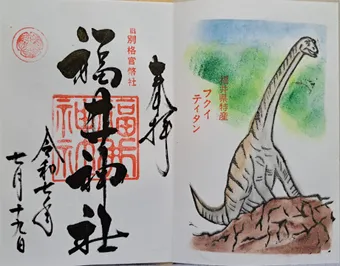 奉拝
旧別格官幣社
福井神社
福井神社
令和七年
七月十九日
福井県特産
フクイ
ティタン